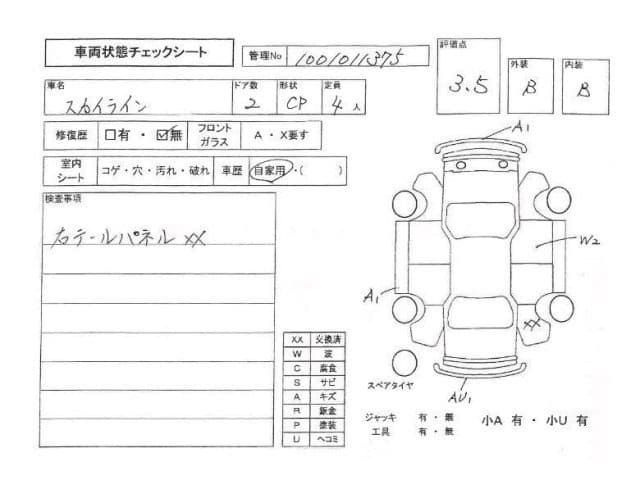 車両状態チェックシート
管理No 1001011375
評価点
3.5
外装
B
内装
B
車名
スカイライン
ドア数
2
形状
CP
定員
4 人
修復歴 □有 ・ ☑無
フロント
ガラス
A ・ X要す
室内
シート
コゲ・穴・汚れ・破れ
車歴 自家用・( )
検査事項
右テールパネル XX
A1
W2
A1
XX
AU1
スペアタイヤ
XX 交換済
W 波
C 腐食
S サビ
A キズ
R 鈑金
P 塗装
U ヘコミ
ジャッキ 有 ・ 無
工具 有 ・ 無
小A 有 ・ 小U 有